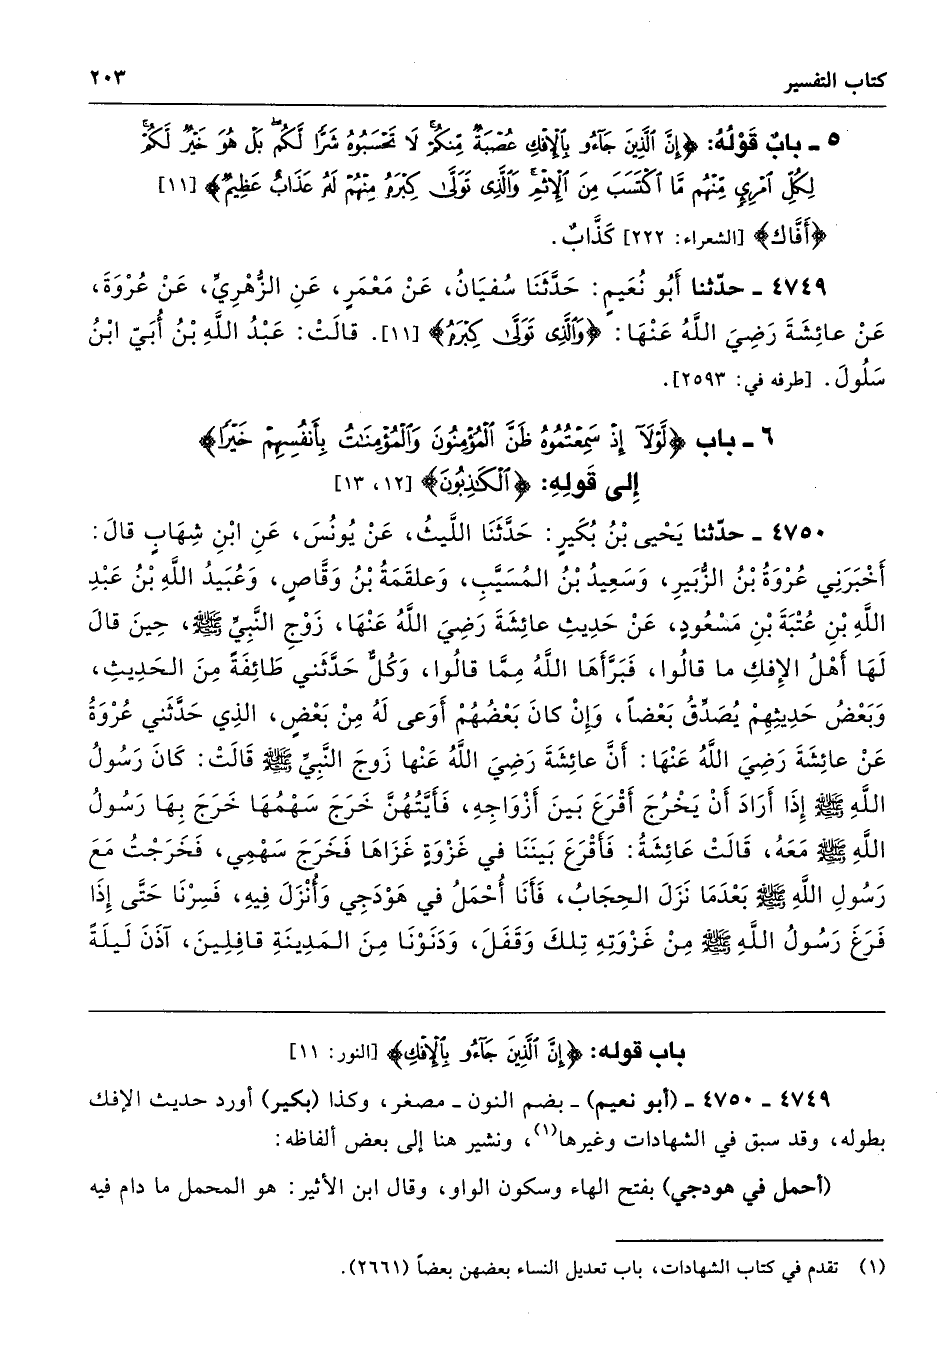 كتاب التفسير ٢٠٣
٥ ـ بابٌ قَوْلُهُ: ﴿إِنَّ ٱلَّذِينَ جَآءُو بِٱلْإِفْكِ عُصْبَةٌ مِّنكُمْ ۚ لَا تَحْسَبُوهُ شَرًّا لَّكُم ۖ بَلْ هُوَ خَيْرٌ لَّكُمْ ۚ
لِكُلِّ ٱمْرِئٍ مِّنْهُم مَّا ٱكْتَسَبَ مِنَ ٱلْإِثْمِ ۚ وَٱلَّذِى تَوَلَّىٰ كِبْرَهُۥ مِنْهُمْ لَهُۥ عَذَابٌ عَظِيمٌ﴾ [١١]
﴿أَفَّاك﴾ [الشعراء: ٢٢٢] كَذَّابٌ.
٤٧٤٩ ـ حدّثنا أَبُو نُعَيمٍ: حَدَّثَنَا سُفيَانُ، عَنْ مَعْمَرٍ، عَنِ الزُّهْرِيِّ، عَنْ عُرْوَةَ،
عَنْ عائِشَةَ رَضِيَ اللَّهُ عَنْهَا: ﴿وَٱلَّذِى تَوَلَّىٰ كِبْرَهُۥ﴾ [١١]. قالَتْ: عَبْدُ اللَّهِ بْنُ أُبَيِّ ابْنُ
سَلُولَ. [طرفه في: ٢٥٩٣].
٦ ـ باب ﴿لَّوْلَآ إِذْ سَمِعْتُمُوهُ ظَنَّ ٱلْمُؤْمِنُونَ وَٱلْمُؤْمِنَٰتُ بِأَنفُسِهِمْ خَيْرًا﴾
إِلى قَولِهِ: ﴿ٱلْكَٰذِبُونَ﴾ [١٢، ١٣]
٤٧٥٠ ـ حدّثنا يَحْيى بْنُ بُكَيرٍ: حَدَّثَنَا اللَّيثُ، عَنْ يُونُسَ، عَنِ ابْنِ شِهَابٍ قالَ:
أَخْبَرَنِي عُرْوَةُ بْنُ الزُّبَيرِ، وَسَعِيدُ بْنُ المُسَيَّبِ، وَعلقَمَةُ بْنُ وَقَّاصٍ، وَعُبَيدُ اللَّهِ بْنُ عَبْدِ
اللَّهِ بْنِ عُتْبَةَ بْنِ مَسْعُودٍ، عَنْ حَدِيثِ عائِشَةَ رَضِيَ اللَّهُ عَنْهَا، زَوْجِ النَّبِيِّ ﷺ، حِينَ قالَ
لَهَا أَهْلُ الإِفكِ ما قالُوا، فَبَرَّأَهَا اللَّهُ مِمَّا قالُوا، وَكُلٌّ حَدَّثَني طَائِفَةً مِنَ الحَدِيثِ،
وَبَعْضُ حَدِيثِهِمْ يُصَدِّقُ بَعْضاً، وَإِنْ كانَ بَعْضُهُمْ أَوْعى لَهُ مِنْ بَعْضٍ، الذِي حَدَّثَني عُرْوَةُ
عَنْ عائِشَةَ رَضِيَ اللَّهُ عَنْهَا: أَنَّ عائِشَةَ رَضِيَ اللَّهُ عَنْها زَوجَ النَّبِيِّ ﷺ قَالَتْ: كَانَ رَسُولُ
اللَّهِ ﷺ إِذَا أَرَادَ أَنْ يَخْرُجَ أَقْرَعَ بَينَ أَزْوَاجِهِ، فَأَيَّتُهُنَّ خَرَجَ سَهْمُهَا خَرَجَ بِهَا رَسُولُ
اللَّهِ ﷺ مَعَهُ، قَالَتْ عَائِشَةُ: فَأَقْرَعَ بَينَنَا في غَزْوَةٍ غَزَاهَا فَخَرَجَ سَهْمِي، فَخَرَجْتُ مَعَ
رَسُولِ اللَّهِ ﷺ بَعْدَمَا نَزَلَ الحِجَابُ، فَأَنَا أُحْمَلُ في هَوْدَجِي وَأُنْزَلُ فِيهِ، فَسِرْنَا حَتَّى إِذَا
فَرَغَ رَسُولُ اللَّهِ ﷺ مِنْ غَزْوَتِهِ تِلكَ وَقَفَلَ، وَدَنَوْنَا مِنَ المَدِينَةِ قافِلِينَ، آذَنَ لَيلَةً
باب قوله: ﴿إِنَّ ٱلَّذِينَ جَآءُو بِٱلْإِفْكِ﴾ [النور: ١١]
٤٧٤٩ ـ ٤٧٥٠ ـ (أبو نعيم) ـ بضم النون ـ مصغر، وكذا (بكير) أورد حديث الإفك
بطوله، وقد سبق في الشهادات وغيرها(١)، ونشير هنا إلى بعض ألفاظه:
(أحمل في هودجي) بفتح الهاء وسكون الواو، وقال ابن الأثير: هو المحمل ما دام فيه
(١) تقدم في كتاب الشهادات، باب تعديل النساء بعضهن بعضاً (٢٦٦١).